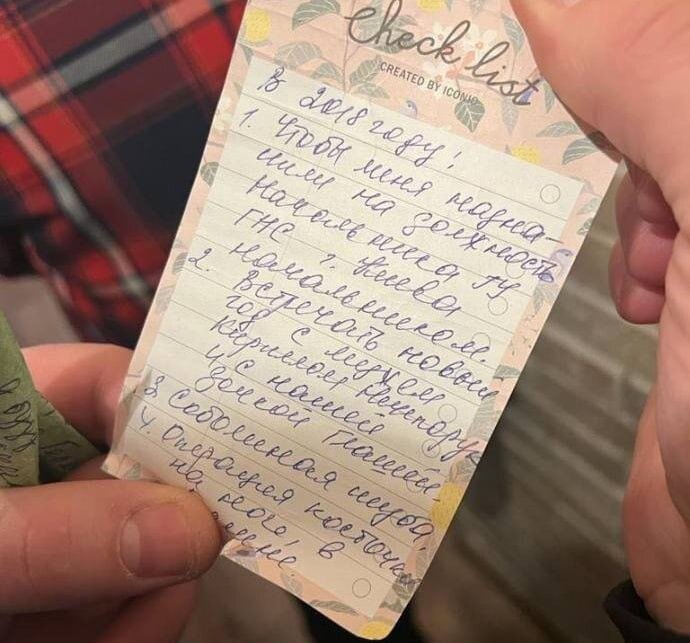 Check list
CREATED BY ICONIC
В 2018 году!
1. Чтобы меня назна-
чили на должность
начальника ГУ
ГНС г. Киева
начальником.
2. Встречать новый
год с мужем
Кириллом
и с нашей
дочкой
3. Соболиная шуба,
4. Операция косточки
на ноге, в